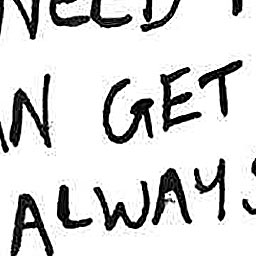 NEED
AN GET
ALWAYS